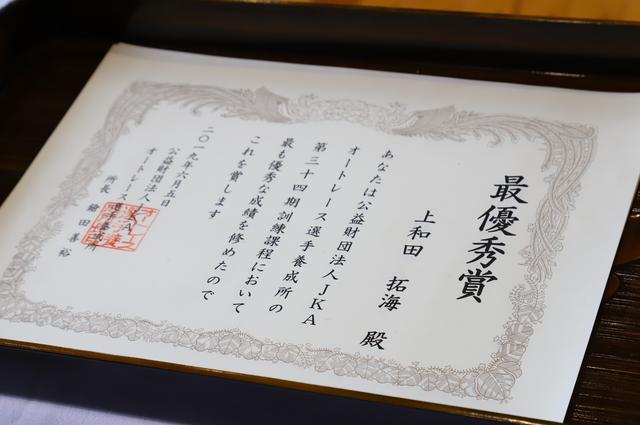 最優秀賞
上和田 拓海 殿
あなたは公益財団法人JKA
オートレース選手養成所の
第三十四期訓練課程において
最も優秀な成績を修めたので
これを賞します
二〇一九年六月五日
公益財団法人JKA
オートレース選手養成所
所長 田 善裕